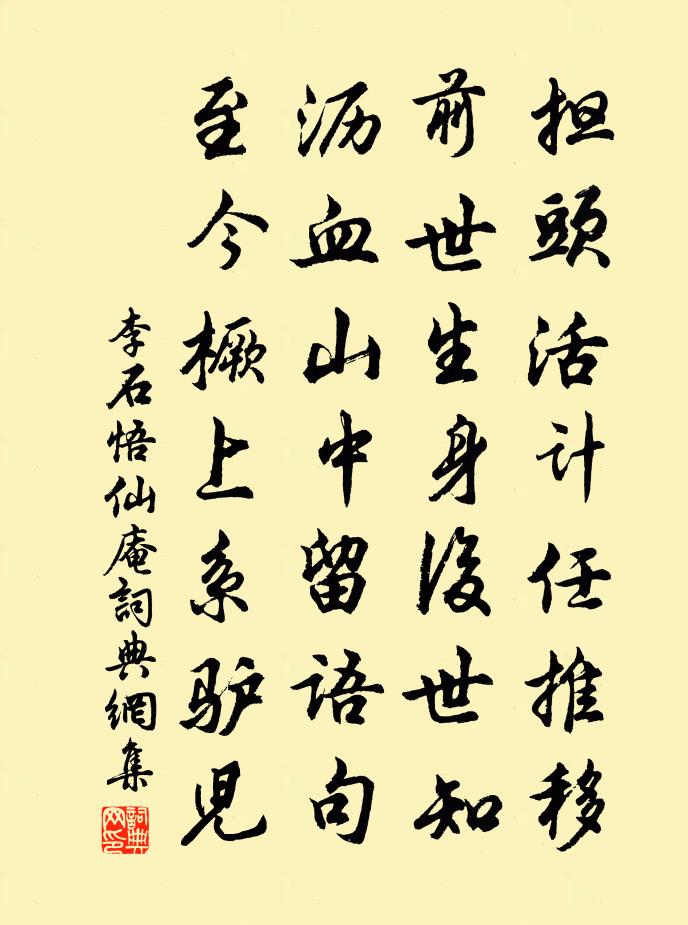 担頭活计任推移
前世生身後世知
沥血山中留語句
至今橛上系驴児
李石悟仙庵詞典網集
詞典網印